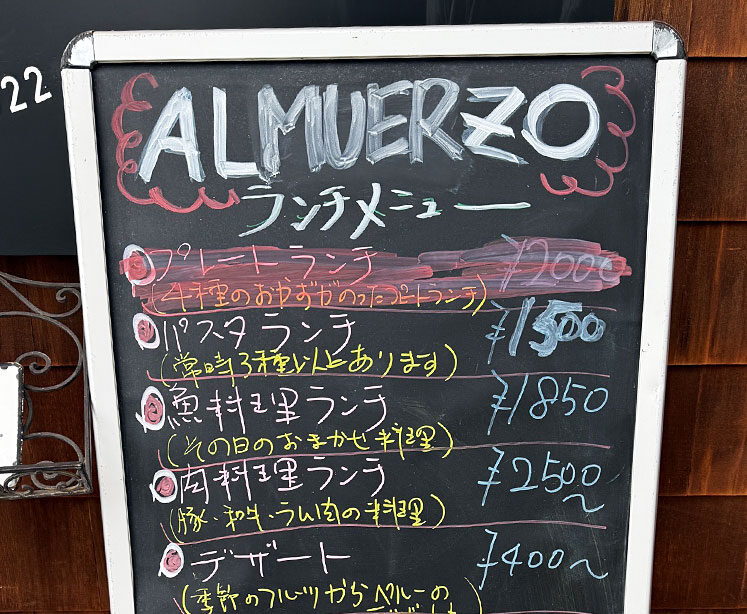 22
ALMUERZO
ランチメニュー
プレートランチ ¥2000
(4種のおかずがのったプレートランチ)
パスタランチ ¥1500
(常時3種以上あります)
魚料理ランチ ¥1850
(その日のおまかせ料理)
肉料理ランチ ¥2500～
(豚・和牛・ラム肉の料理)
デザート ¥400～
(季節のフルーツからペルーの